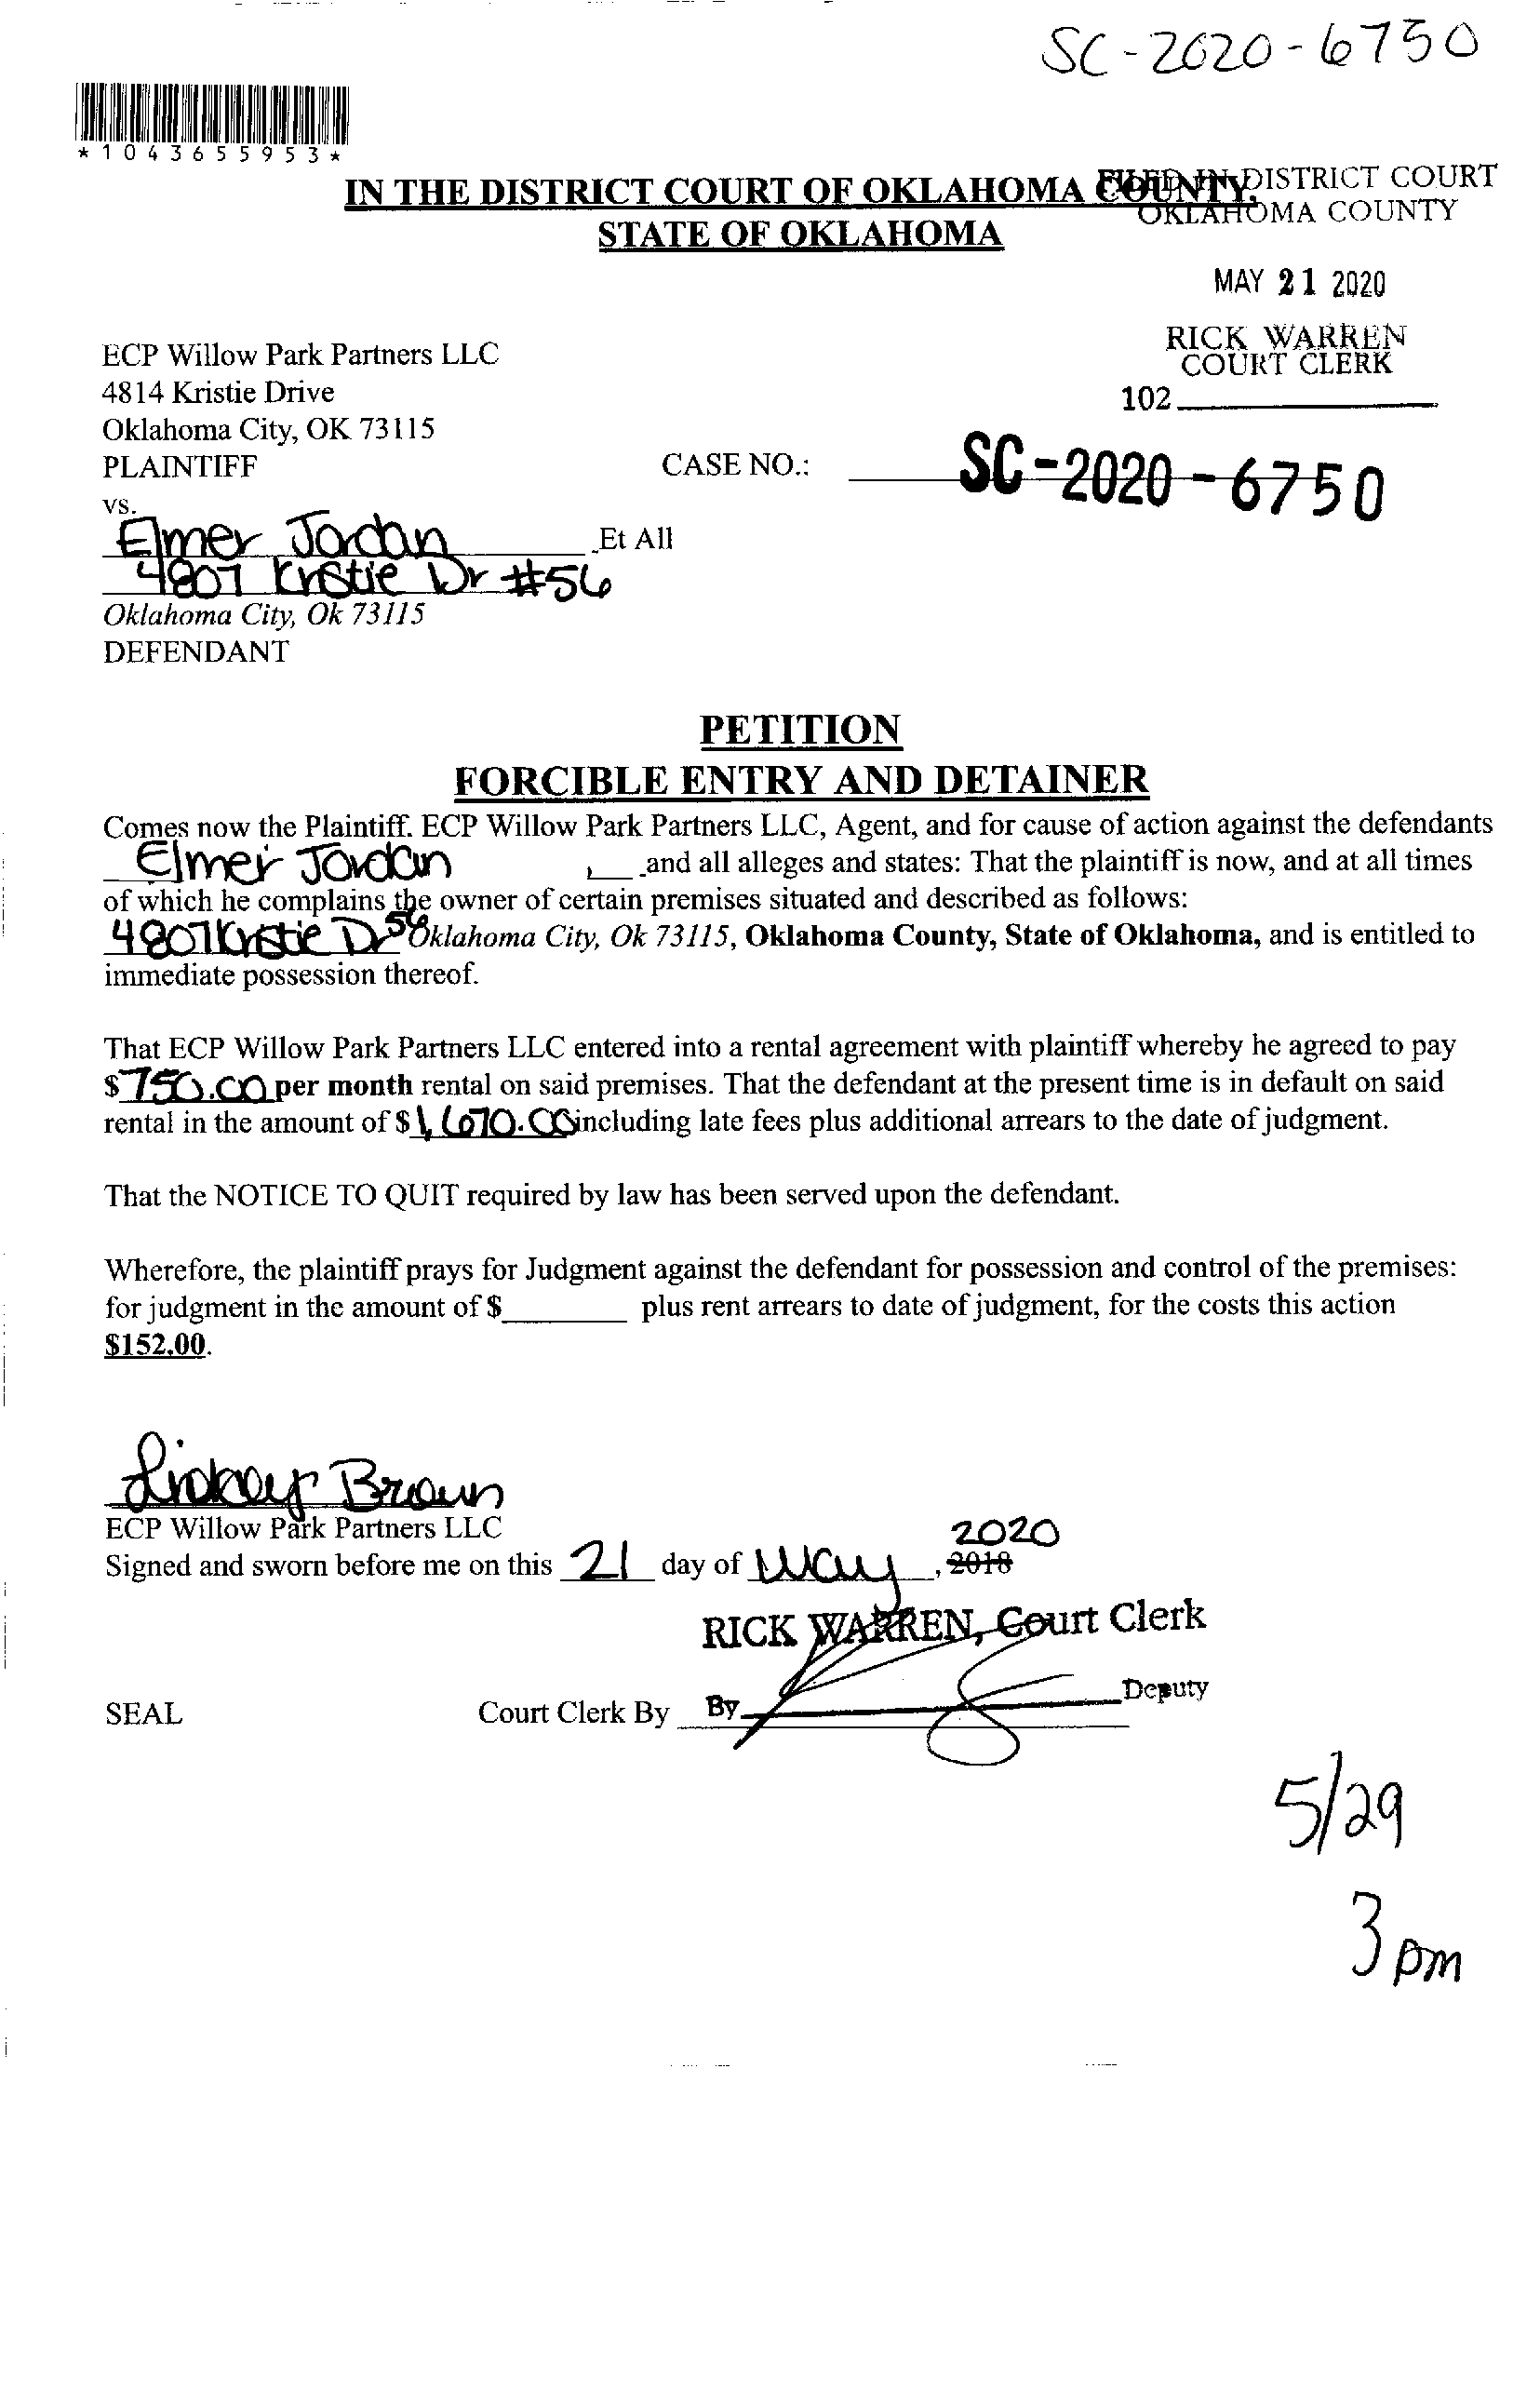 SC-2020-6750
*1043655953*
IN THE DISTRICT COURT OF OKLAHOMA COUNTY,
STATE OF OKLAHOMA
FILED IN DISTRICT COURT
OKLAHOMA COUNTY
MAY 21 2020
RICK WARREN
COURT CLERK
102
ECP Willow Park Partners LLC
4814 Kristie Drive
Oklahoma City, OK 73115
PLAINTIFF
CASE NO.: SC-2020-6750
vs.
Elmer Jordan Et All
4807 Krstie Dr #56
Oklahoma City, Ok 73115
DEFENDANT
PETITION
FORCIBLE ENTRY AND DETAINER
Comes now the Plaintiff. ECP Willow Park Partners LLC, Agent, and for cause of action against the defendants
Elmer Jordan , and all alleges and states: That the plaintiff is now, and at all times
of which he complains the owner of certain premises situated and described as follows:
4807 Krstie Dr 56 Oklahoma City, Ok 73115, Oklahoma County, State of Oklahoma, and is entitled to
immediate possession thereof.
That ECP Willow Park Partners LLC entered into a rental agreement with plaintiff whereby he agreed to pay
$750.00 per month rental on said premises. That the defendant at the present time is in default on said
rental in the amount of $1,670.00 including late fees plus additional arrears to the date of judgment.
That the NOTICE TO QUIT required by law has been served upon the defendant.
Wherefore, the plaintiff prays for Judgment against the defendant for possession and control of the premises:
for judgment in the amount of $ plus rent arrears to date of judgment, for the costs this action
$152.00.
Lindsey Brown
ECP Willow Park Partners LLC
2020
Signed and sworn before me on this 21 day of May, 2018
RICK WARREN, Court Clerk
SEAL Court Clerk By By Deputy
5/29
3 pm